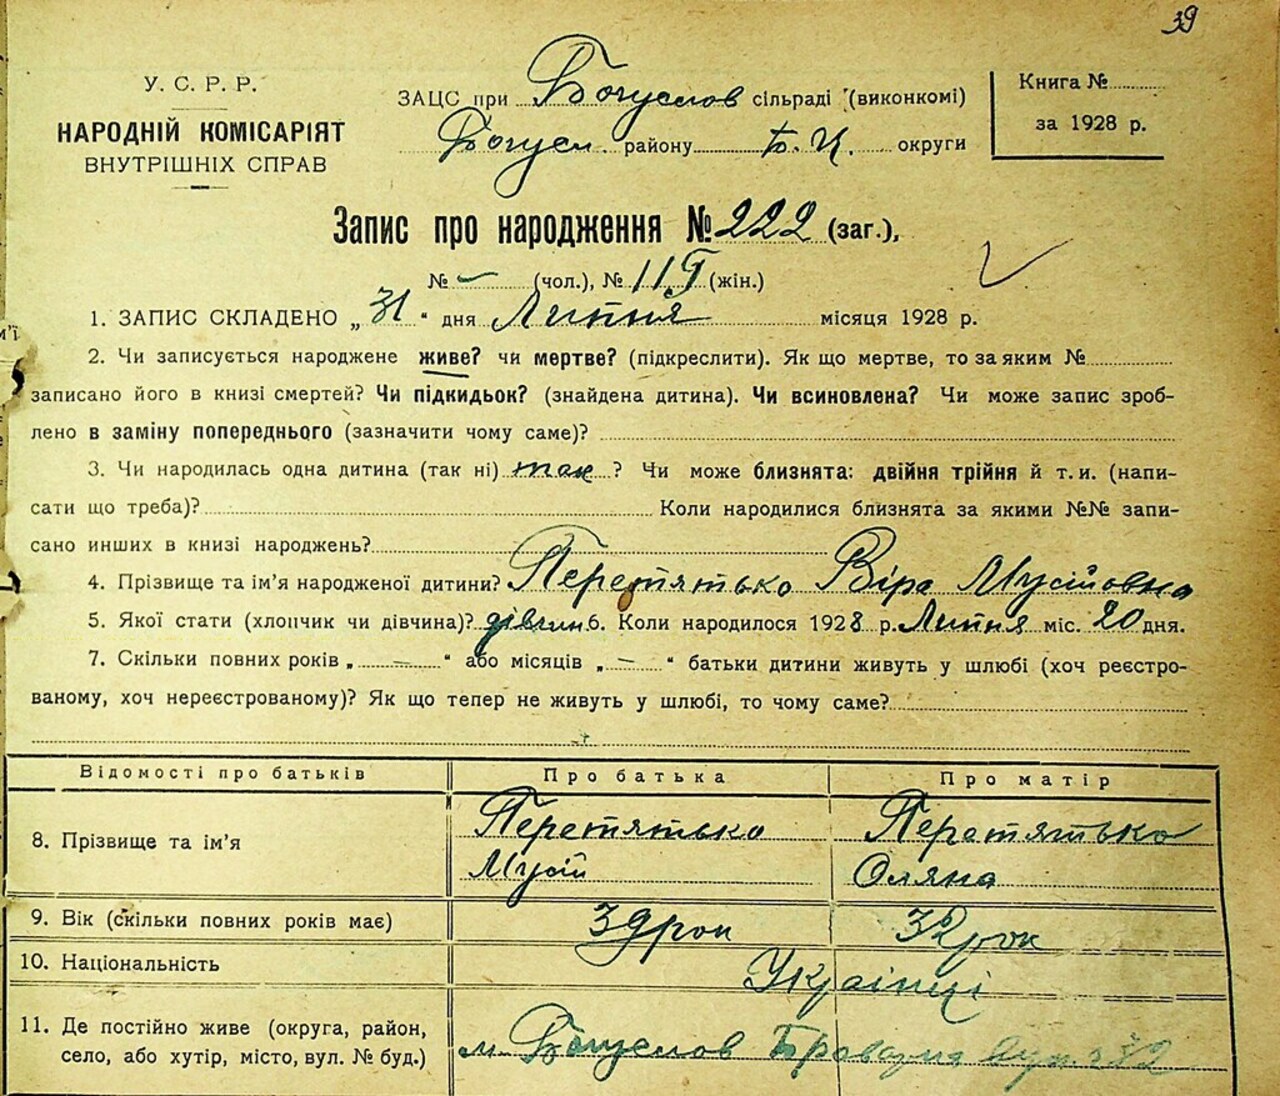 39
У. С. Р. Р.
НАРОДНІЙ КОМІСАРІЯТ
ВНУТРІШНІХ СПРАВ
ЗАЦС при Богуслов сільраді (виконкомі)
Богусл. району Б. Ц. округи
Книга №
за 1928 р.
Запис про народження № 222 (заг.),
№ - (чол.), № 115 (жін.)
1. ЗАПИС СКЛАДЕНО „31“ дня Липня місяця 1928 р.
2. Чи записується народжене живе? чи мертве? (підкреслити). Як що мертве, то за яким №
записано його в книзі смертей? Чи підкидьок? (знайдена дитина). Чи всиновлена? Чи може запис зроб-
лено в заміну попереднього (зазначити чому саме)?
3. Чи народилась одна дитина (так ні) так? Чи може близнята: двійня трійня й т. и. (напи-
сати що треба)? Коли народилися близнята за якими №№ запи-
сано инших в книзі народжень?
4. Прізвище та ім’я народженої дитини? Перетятько Віра Мусіївна
5. Якої стати (хлопчик чи дівчина)? дівчин 6. Коли народилося 1928 р. Липня міс. 20 дня.
7. Скільки повних років „ — “ або місяців „ — “ батьки дитини живуть у шлюбі (хоч реєстро-
ваному, хоч нереєстрованому)? Як що тепер не живуть у шлюбі, то чому саме?
Відомості про батьків Про батька Про матір
8. Прізвище та ім’я Перетятько Мусій Перетятько Оляна
9. Вік (скільки повних років має) 39 рок 32 рок
10. Національність Українці
11. Де постійно живе (округа, район,
село, або хутір, місто, вул. № буд.) м. Богуслов Броварна вул.